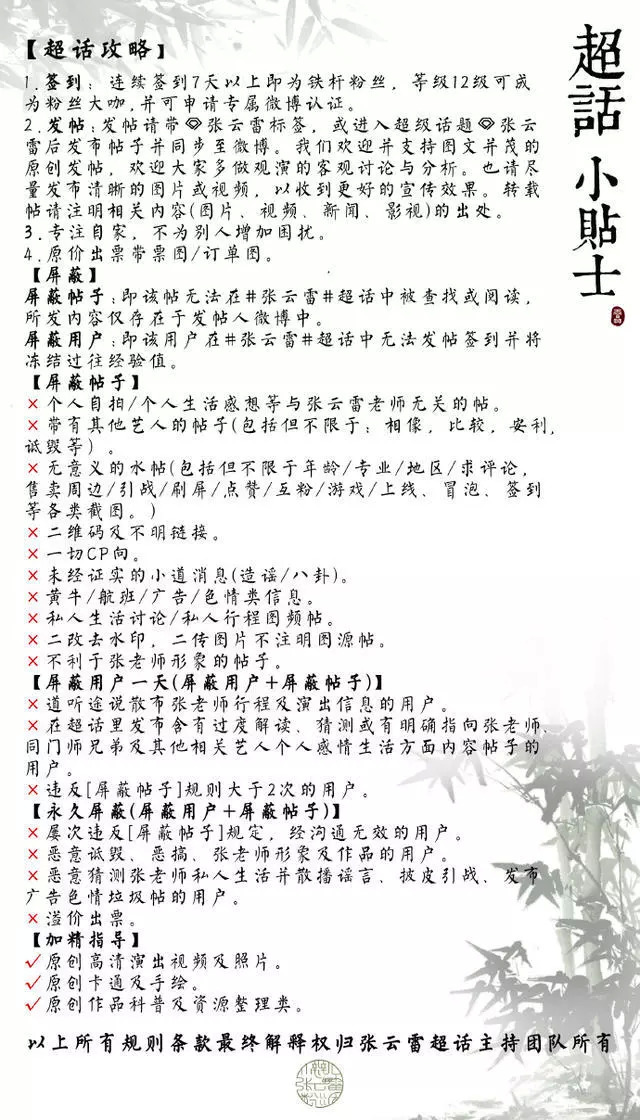 超话 小贴士
【超话攻略】
1.签到：连续签到7天以上即为铁杆粉丝，等级12级可成
为粉丝大咖,并可申请专属微博认证。
2.发帖:发帖请带张云雷标签，或进入超级话题张云
雷后发布帖子并同步至微博。我们欢迎并支持图文并茂的
原创发帖，欢迎大家多做观演的客观讨论与分析。也请尽
量发布清晰的图片或视频，以收到更好的宣传效果。转载
帖请注明相关内容(图片、视频、新闻、影视)的出处。
3.专注自家，不为别人增加困扰。
4.原价出票带票图/订单图。
【屏蔽】
屏蔽帖子:即该帖无法在#张云雷#超话中被查找或阅读，
所发内容仅存在于发帖人微博中。
屏蔽用户:即该用户在#张云雷#超话中无法发帖签到并将
冻结过往经验值。
【屏蔽帖子】
×个人自拍/个人生活感想等与张云雷老师无关的帖。
×带有其他艺人的帖子(包括但不限于：相像，比较，安利，
诋毁等）。
×无意义的水帖(包括但不限于年龄/专业/地区/求评论，
售卖周边/引战/刷屏/点赞/互粉/游戏/上线、冒泡、签到
等各类截图。)
×二维码及不明链接。
×一切CP向。
×未经证实的小道消息(造谣/八卦)。
×黄牛/航班/广告/色情类信息。
×私人生活讨论/私人行程图频帖。
×二改去水印，二传图片不注明图源帖。
×不利于张老师形象的帖子。
【屏蔽用户一天(屏蔽用户+屏蔽帖子)】
×道听途说散布张老师行程及演出信息的用户。
×在超话里发布含有过度解读、猜测或有明确指向张老师、
同门师兄弟及其他相关艺人个人感情生活方面内容帖子的
用户。
×违反[屏蔽帖子]规则大于2次的用户。
【永久屏蔽(屏蔽用户+屏蔽帖子)】
×屡次违反[屏蔽帖子]规定，经沟通无效的用户。
×恶意诋毁、恶搞、张老师形象及作品的用户。
×恶意猜测张老师私人生活并散播谣言、披皮引战、发布
广告色情垃圾帖的用户。
×溢价出票。
【加精指导】
✓原创高清演出视频及照片。
✓原创卡通及手绘。
✓原创作品科普及资源整理类。
以上所有规则条款最终解释权归张云雷超话主持团队所有